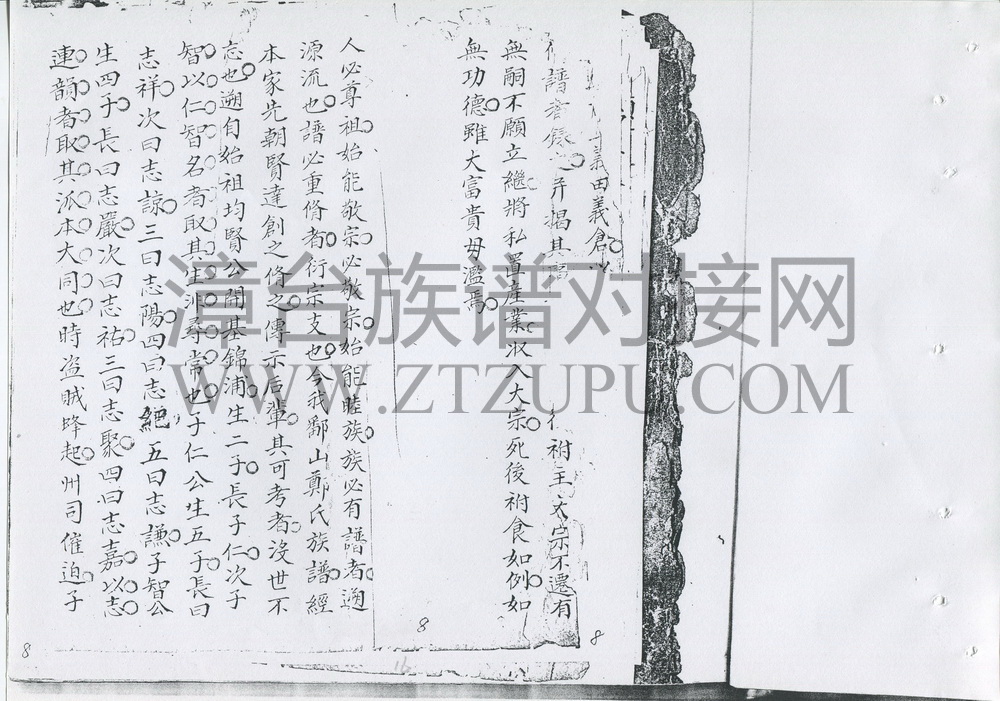 義田義倉
祔主大宗不遷有
譜者錄 并揭其
無嗣不願立繼將私置産業㳄入大宗死後祔食如例如
無功德雖大富貴毋濫焉
人必尊祖始能敬宗必敬宗始能睦族族必有譜者遡
源流也譜必重脩者衍宗支也今我鄱山鄭氏族譜經
本家先朝賢達創之脩之傳示后輩其可考者沒世不
忘也遡自始祖均賢公開基錦浦生二子長子仁次子
智以仁智名者取其生非尋常也子仁公生五子長曰
志祥次曰志諒三曰志陽四曰志紀五曰志謙子智公
生四子長曰志嚴次曰志祐三曰志聚四曰志嘉以志
連韻者取其派本大同也時盗賊蜂起州司催迫子
8
8
8
漳台族谱对接网
WWW.ZTZUPU.COM